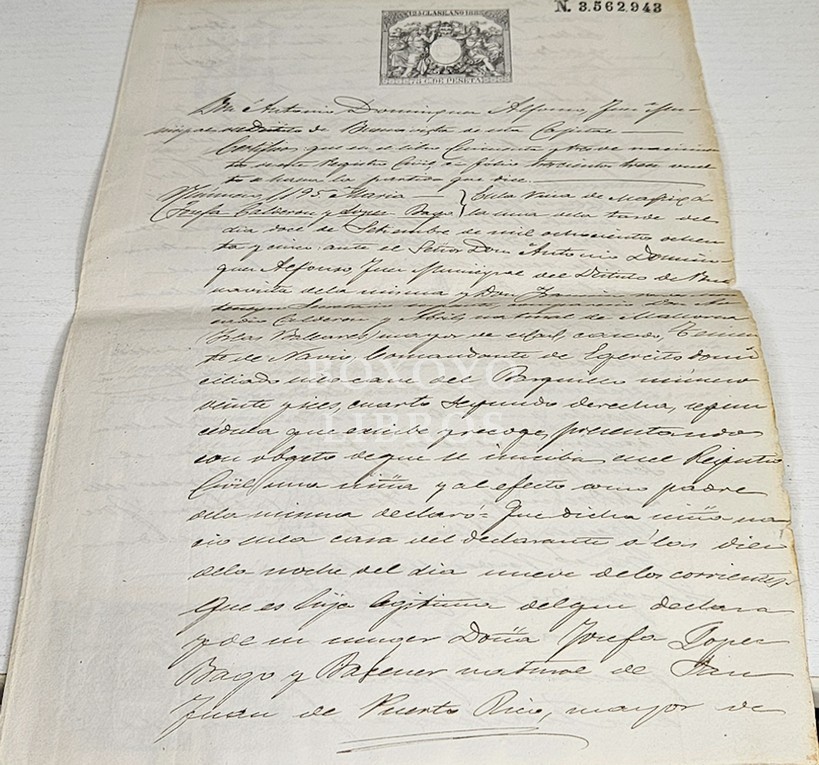 N. 3.562.943
CLASE AÑO 188
75 C. DE PESETA
Dn. Antonio Dominguez Alfonso, Juez Mu-
nicipal del Distrito de Buenavista de esta Capital
Certifico: que en el libro cincuenta y tres de nacimien
tos de este Registro Civil, en folio trescientos tres vuel
to se halla la partida que dice
Número 1195. Maria } En la Villa de Madrid a
Josefa Calderon y Lopez Bago } la una de la tarde del
dia doce de Setiembre de mil ochocientos ochen
ta y cinco: ante el Señor Don Antonio Domin
guez Alfonso, Juez Municipal del Distrito de Bue
navista de la misma y Don
Calderon y Abril, natural de Mallorca
Islas Baleares, mayor de edad, casado, Tenien
te de Navio, Comandante de Egercito domi
ciliado en la calle del Barquillo número
veinte y seis, cuarto segundo derecha, segun
cédula que exhibe y recoge, presentando
con objeto de que se inscriba en el Registro
Civil una niña y al efecto como padre
de la misma declaró: Que dicha niña na
cio en la casa del declarante á las diez
de la noche del dia nueve de los corrientes.
Que es hija legitima del que declara
y de su muger Doña Josefa Lopez
Bago y natural de San
Juan de Puerto Rico, mayor de
BOXOYO
LIBROS